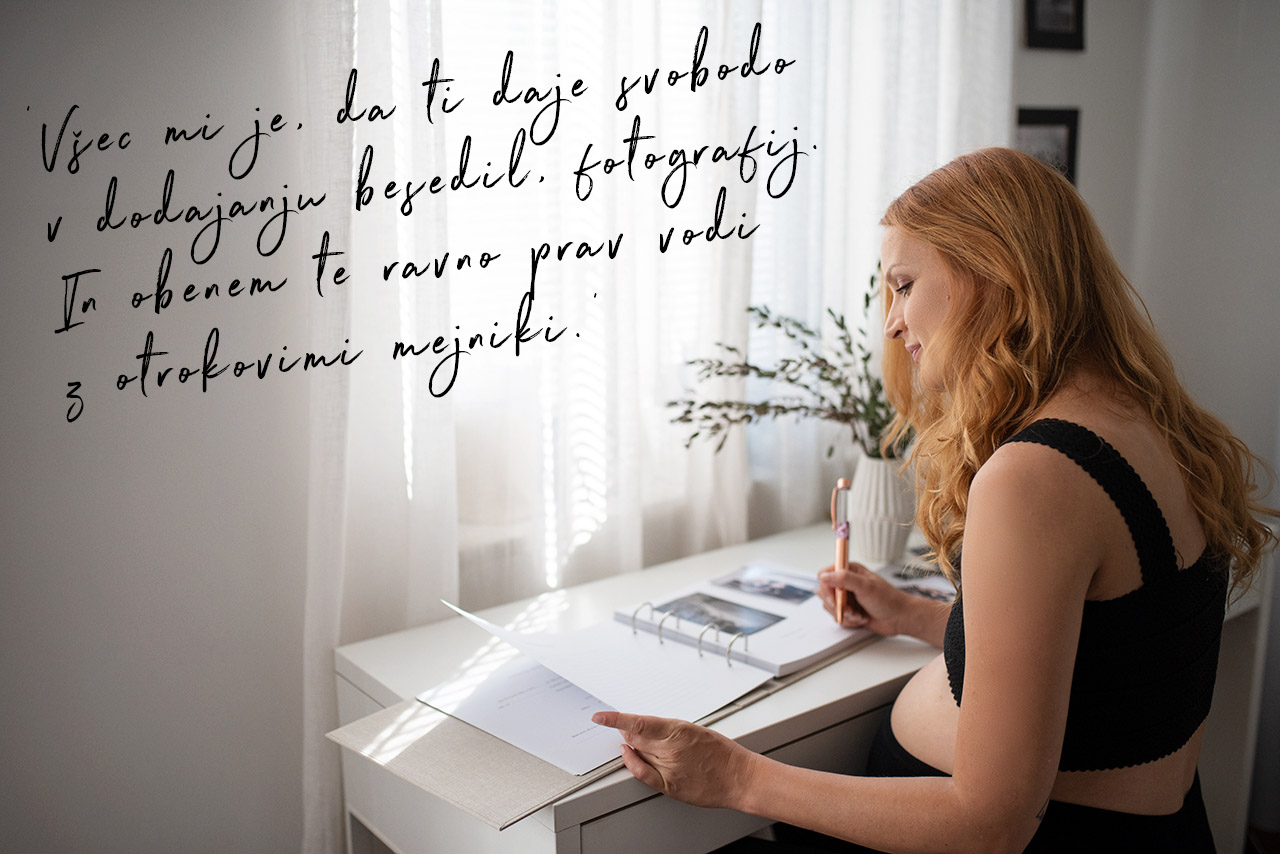 'Všec mi je, da ti daje svobodo
v dodajanju besedil, fotografij.
In obenem te ravno prav vodi
z otrokovimi mejniki.'